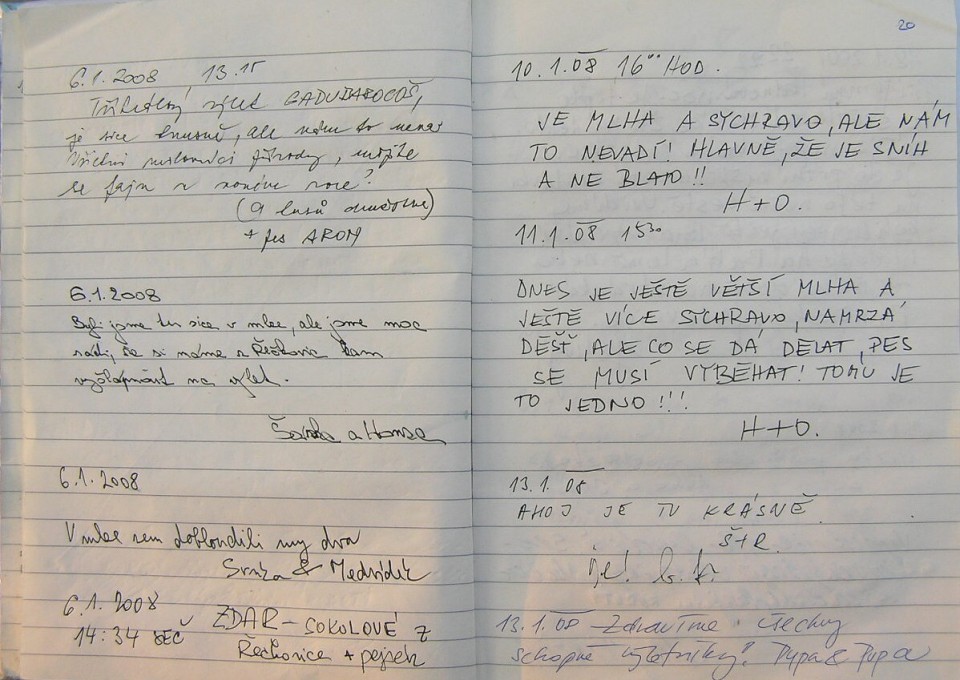 6.1.2008 13.15
Tříkrálový výlet
je sice hnusně, ale nám to nena-
přírody, užijte
se fajn v novém roce!
+ pes AROM
6.1.2008
Byli jsme tu sice v mlze, ale jsme moc
rádi, že si máme z Řečkovic kam
vyšlápnout na výlet.
Šárka a Honza
6.1.2008
V mlze sem dobloudili my dva
& Medvídek
6.1.2008
14:34 SEČ
ZDAR – SOKOLOVÉ z
Řečkovice + pejsek
20
10.1.08 16°° HOD.
JE MLHA A SYCHRAVO, ALE NÁM
TO NEVADÍ! HLAVNĚ, ŽE JE SNÍH
A NE BLATO!!
H+O.
11.1.08 15³⁰
DNES JE JEŠTĚ VĚTŠÍ MLHA A
JEŠTĚ VÍCE SYCHRAVO, NAMRZÁ
DÉŠŤ, ALE CO SE DÁ DĚLAT, PES
SE MUSÍ VYBĚHAT! TOMU JE
TO JEDNO!!!
H+O.
13.1.08
AHOJ JE TU KRÁSNĚ
Š+R.
13.1.08 Zdravíme všechny
schopné výletníky! Pupa & Pupa